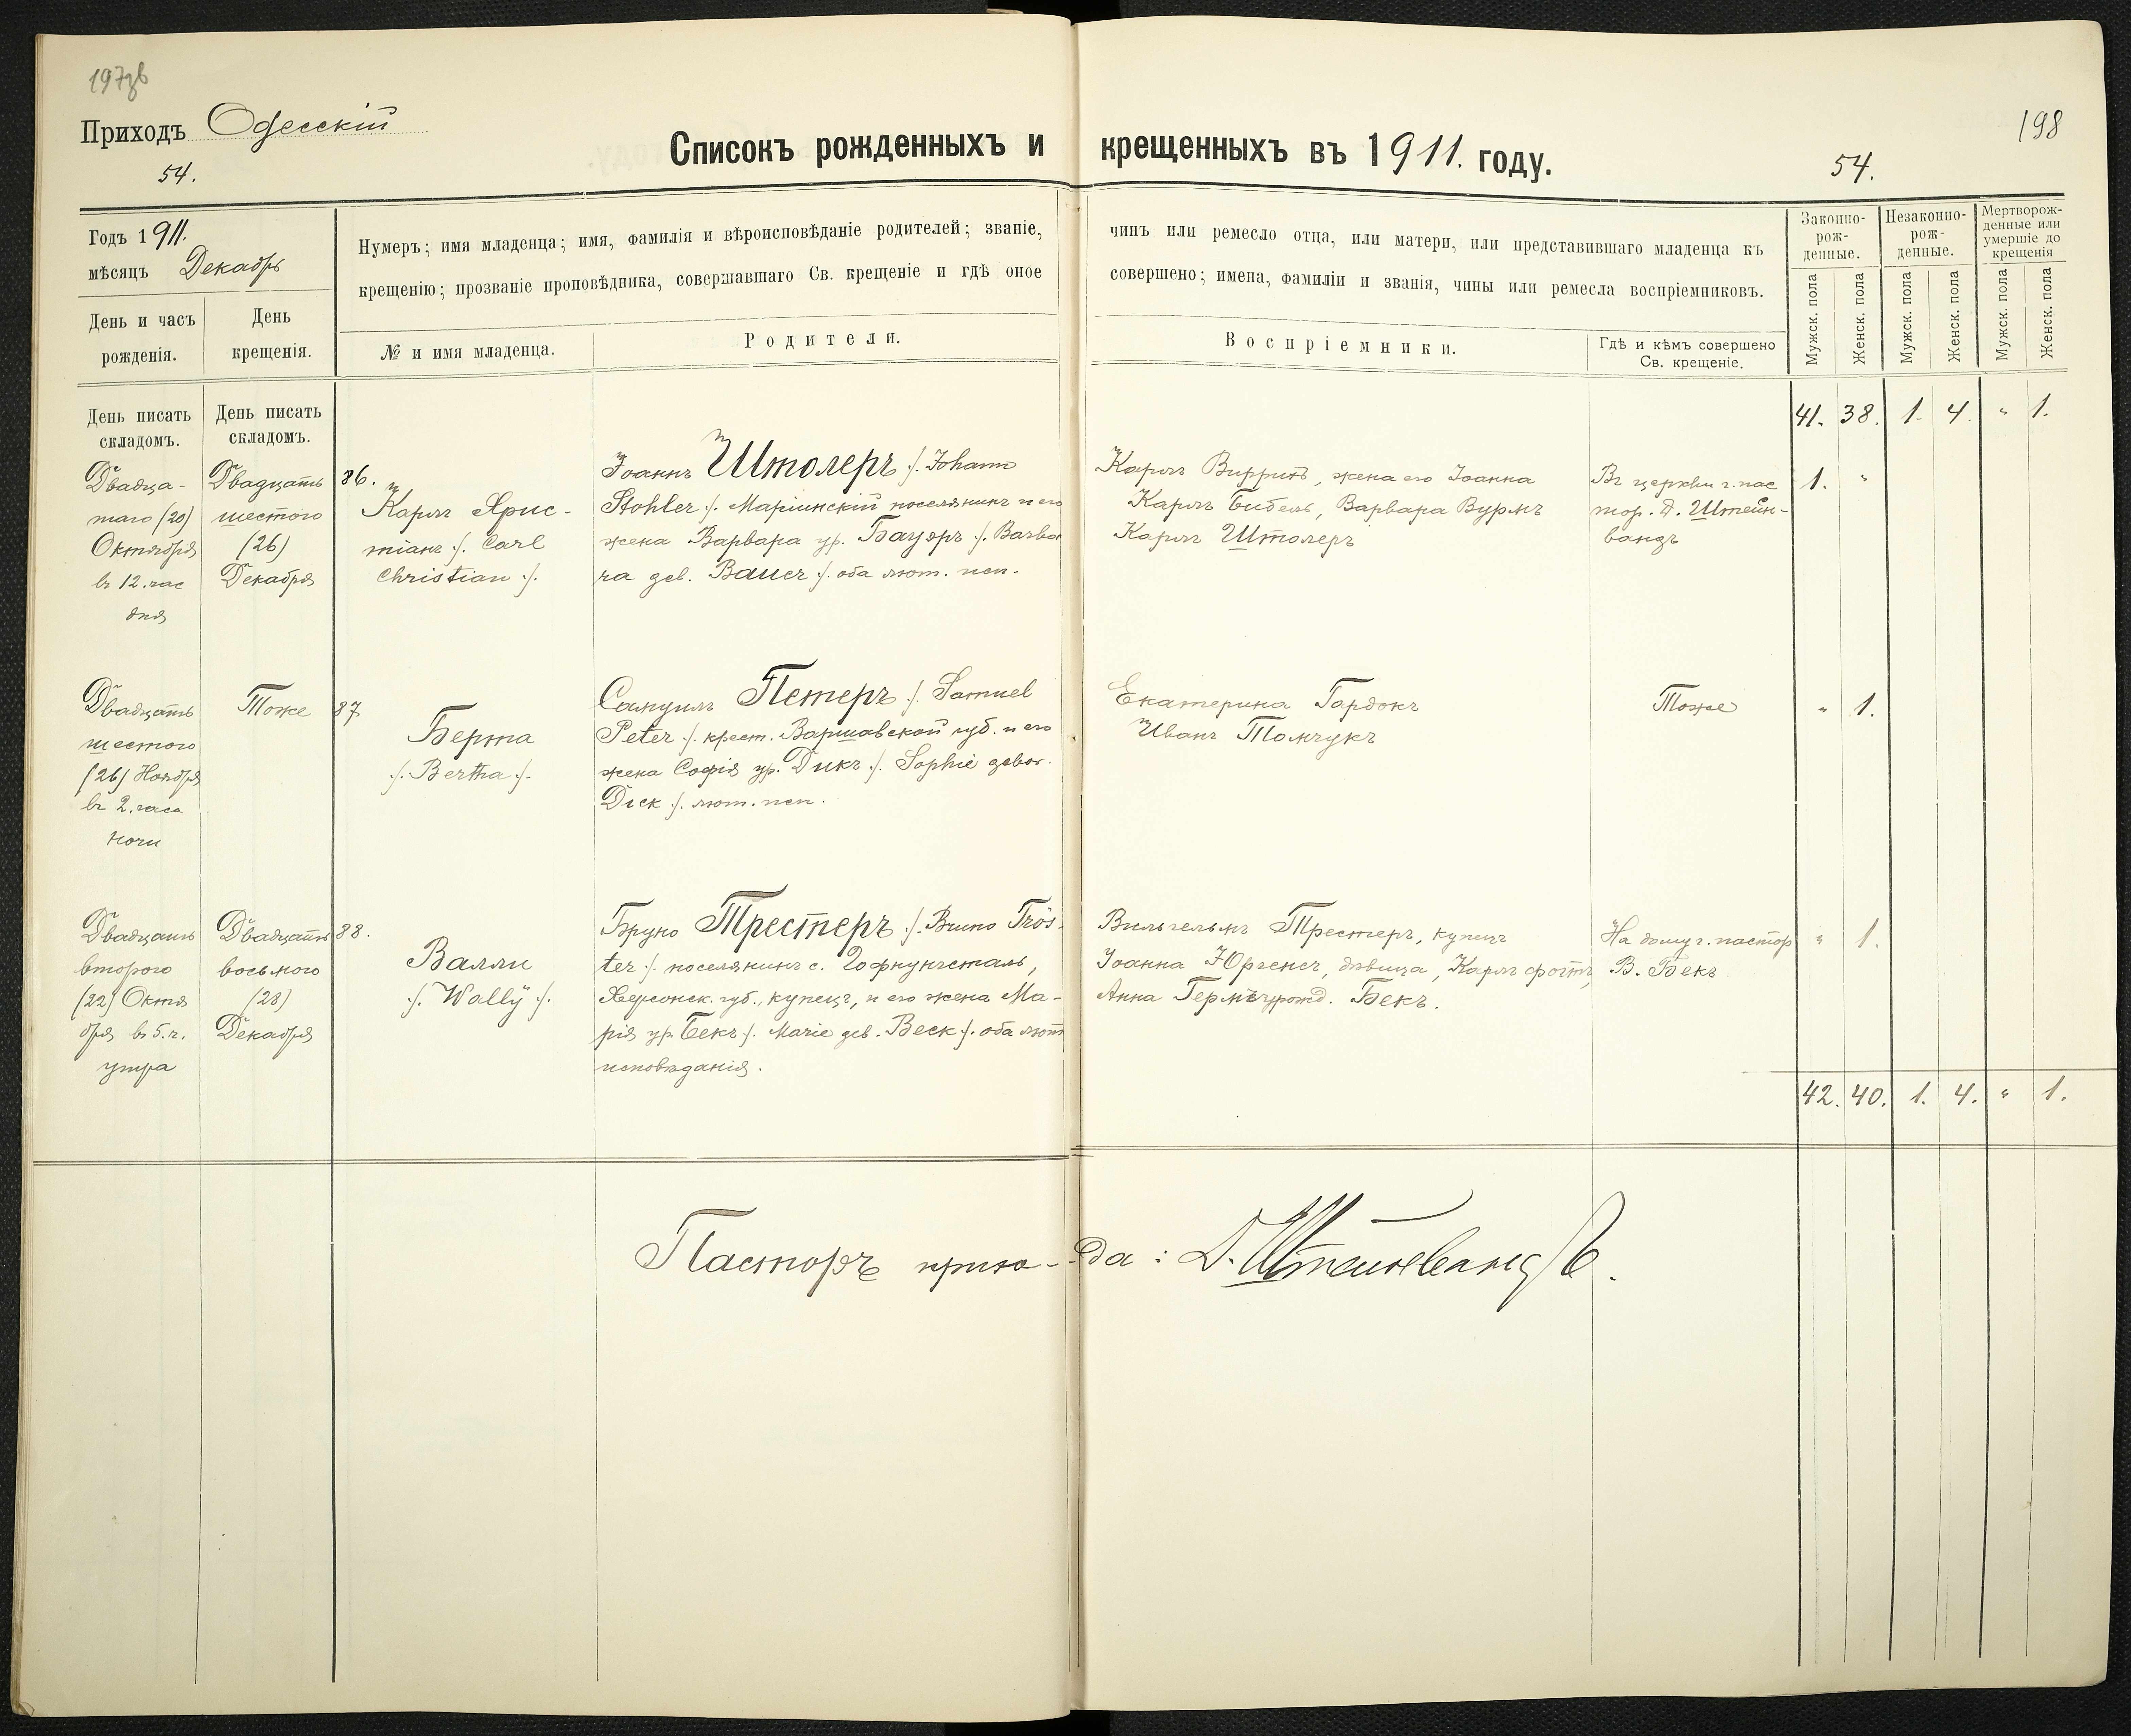 Приходъ Одесскій
54.
198
Списокъ рожденныхъ и крещенныхъ въ 1911. году.
54.
Годъ 1911.
мѣсяцъ Декабрь
День и часъ рожденія.
День крещенія.
Нумеръ; имя младенца; имя, фамилія и вѣроисповѣданіе родителей; званіе, чинъ или ремесло отца, или матери, или представившаго младенца къ
крещенію; прозваніе проповѣдника, совершавшаго Св. крещеніе и гдѣ оное совершено; имена, фамиліи и званія, чины или ремесла воспріемниковъ.
№ и имя младенца.
Родители.
Воспріемники.
Гдѣ и кѣмъ совершено
Св. крещеніе.
Законно-
рож-
денные.
Незаконно-
рож-
денные.
Мертворож-
денные или
умершіе до
крещенія
Мужск. пола
Женск. пола
Мужск. пола
Женск. пола
Мужск. пола
Женск. пола
День писать
складомъ.
День писать
складомъ.
41. 38. 1. 4. " 1.
Двадца-
таго (20)
Октября
въ 12. час
дня
Двадцать
шестого
(26)
Декабря
86.
Карлъ Хрис-
тіанъ ./. Carl
Christian ./.
Іоаннъ Штолеръ ./. Johann
Stohler ./. Маріинскій поселянинъ и его
жена Варвара ур. Бауэръ ./. Barba
ra geb. Bauer ./. оба лют. исп.
Карлъ, жена его Іоанна
Карлъ Бибель, Варвара Вурмъ
Карлъ Штолеръ
Въ церкви г. пас
тор. Д. Штейн-
вандъ
1. "
Двадцать
шестого
(26) Ноября
въ 2. часа
ночи
Тоже
87
Берта
./. Bertha ./.
Самуилъ Петеръ ./. Samuel
Peter ./. крест. Варшавской губ. и его
жена Софія ур. Дикъ ./. Sophie gebor.
Dick ./. лют. исп.
Екатерина Гардокъ
Иванъ Томчукъ
Тоже
" 1.
Двадцать
второго
(22) Октя
бря въ 5. ч.
утра
Двадцать
восьмого
(28)
Декабря
88.
Валли
./. Wally ./.
Бруно Трестеръ ./. Bruno Trös-
ter ./. поселянинъ с. Гофнунгсталь,
Херсонск. губ., купецъ, и его жена Ма-
рія ур. Бекъ ./. Marie geb. Beck ./. оба лют
исповѣданія.
Вильгельмъ Трестеръ, купецъ
Іоанна Юргенсъ, дѣвица, Карлъ
Анна урожд. Бекъ.
На дому г. пастор
В. Бекъ
" 1.
42. 40. 1. 4. " 1.
Пасторъ прихо-да: Д. Штейнвандъ.